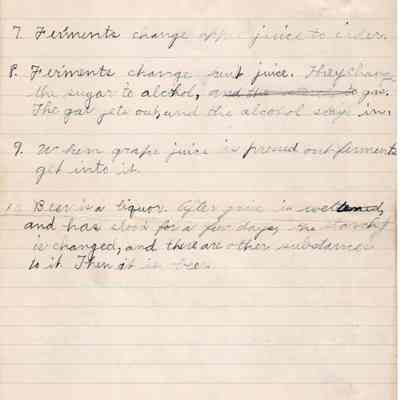 7. Ferments change apple juice to cider.
8. Ferments change fruit juice. They change
the sugar to alcohol, and the alcohol to gas.
The gas gets out, and the alcohol stays in.
9. When grape juice is pressed out ferments
get into it.
10. Beer is a liquor. After juice is
and has stood for a few days, the starch
is changed, and there are other substances
to it. Then it is beer.